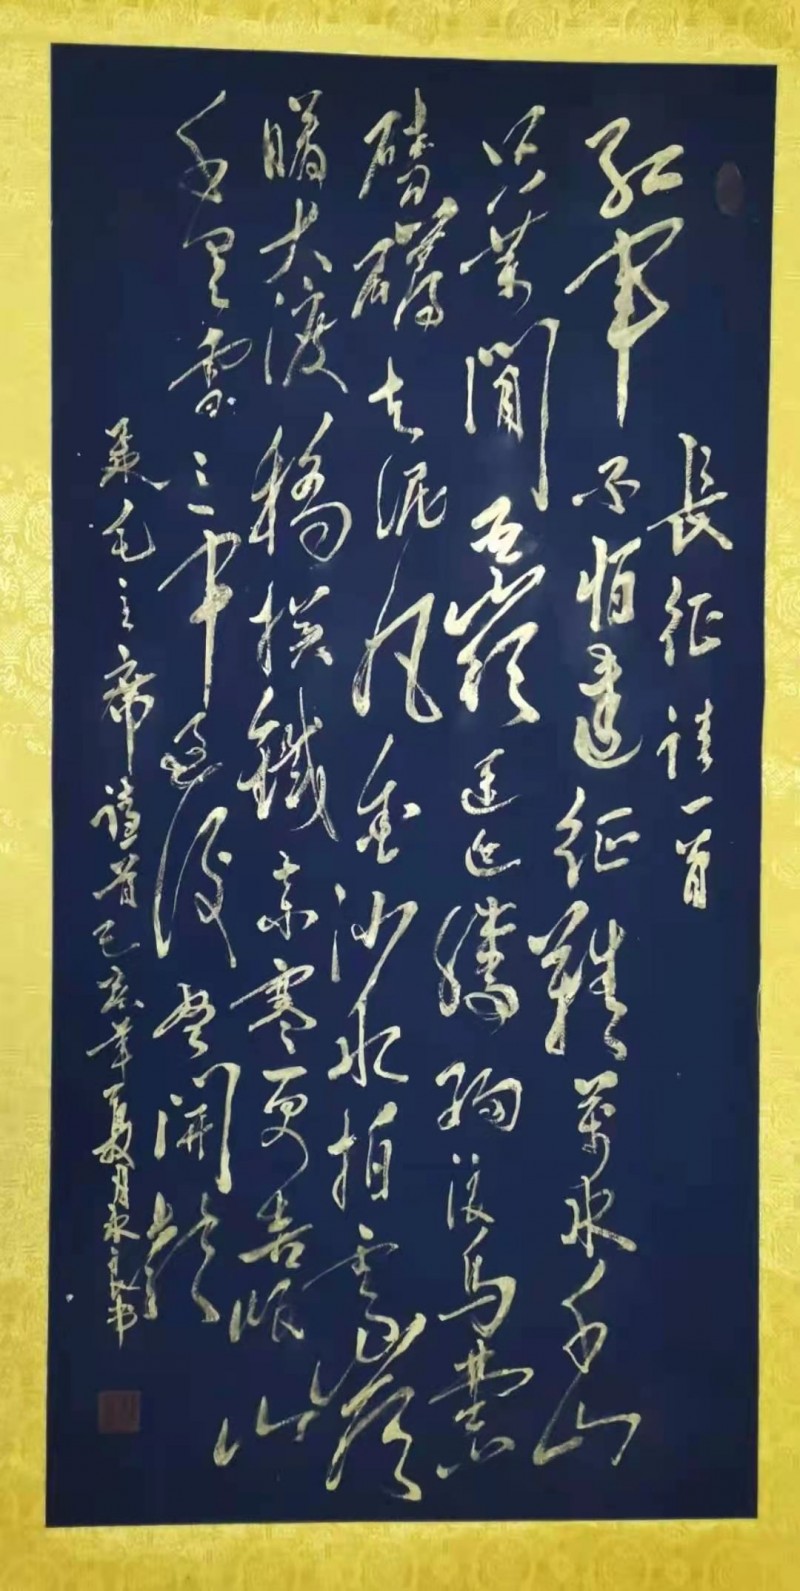 長征詩一首
紅軍不怕遠征難萬水千山
只等閒五嶺逶迤騰細浪烏蒙
磅礴走泥丸金沙水拍雲崖
暖大渡橋橫鐵索寒更喜岷山
千里雪三軍過後盡開顏
录毛主席詩首己亥年夏月永良书